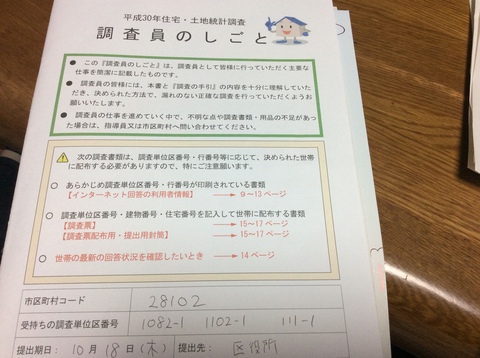 平成30年住宅・土地統計調査
調査員のしごと
● この『調査員のしごと』は、調査員として皆様に行っていただく主要な
仕事を簡潔に記載したものです。
● 調査員の皆様には、本書と『調査の手引』の内容を十分に理解していた
だき、決められた方法で、漏れのない正確な調査を行っていただくようお
願いいたします。
● 調査員の仕事を進めていく中で、不明な点や調査書類・用品の不足があ
った場合は、指導員又は市区町村へ問い合わせてください。
次の調査書類は、調査単位区番号・行番号等に応じて、決められた世帯
に配布する必要がありますので、特にご注意願います。
○ あらかじめ調査単位区番号・行番号が印刷されている書類
【インターネット回答の利用者情報】 → 9~13ページ
○ 調査単位区番号・建物番号・住宅番号を記入して世帯に配布する書類
【調査票】 → 15~17ページ
【調査票配布用・提出用封筒】 → 15~17ページ
○ 世帯の最新の回答状況を確認したいとき → 14ページ
市区町村コード 28102
受持ちの調査単位区番号 1082-1 1102-1 111-1
提出期日: 10月18日(木) 提出先: 区役所